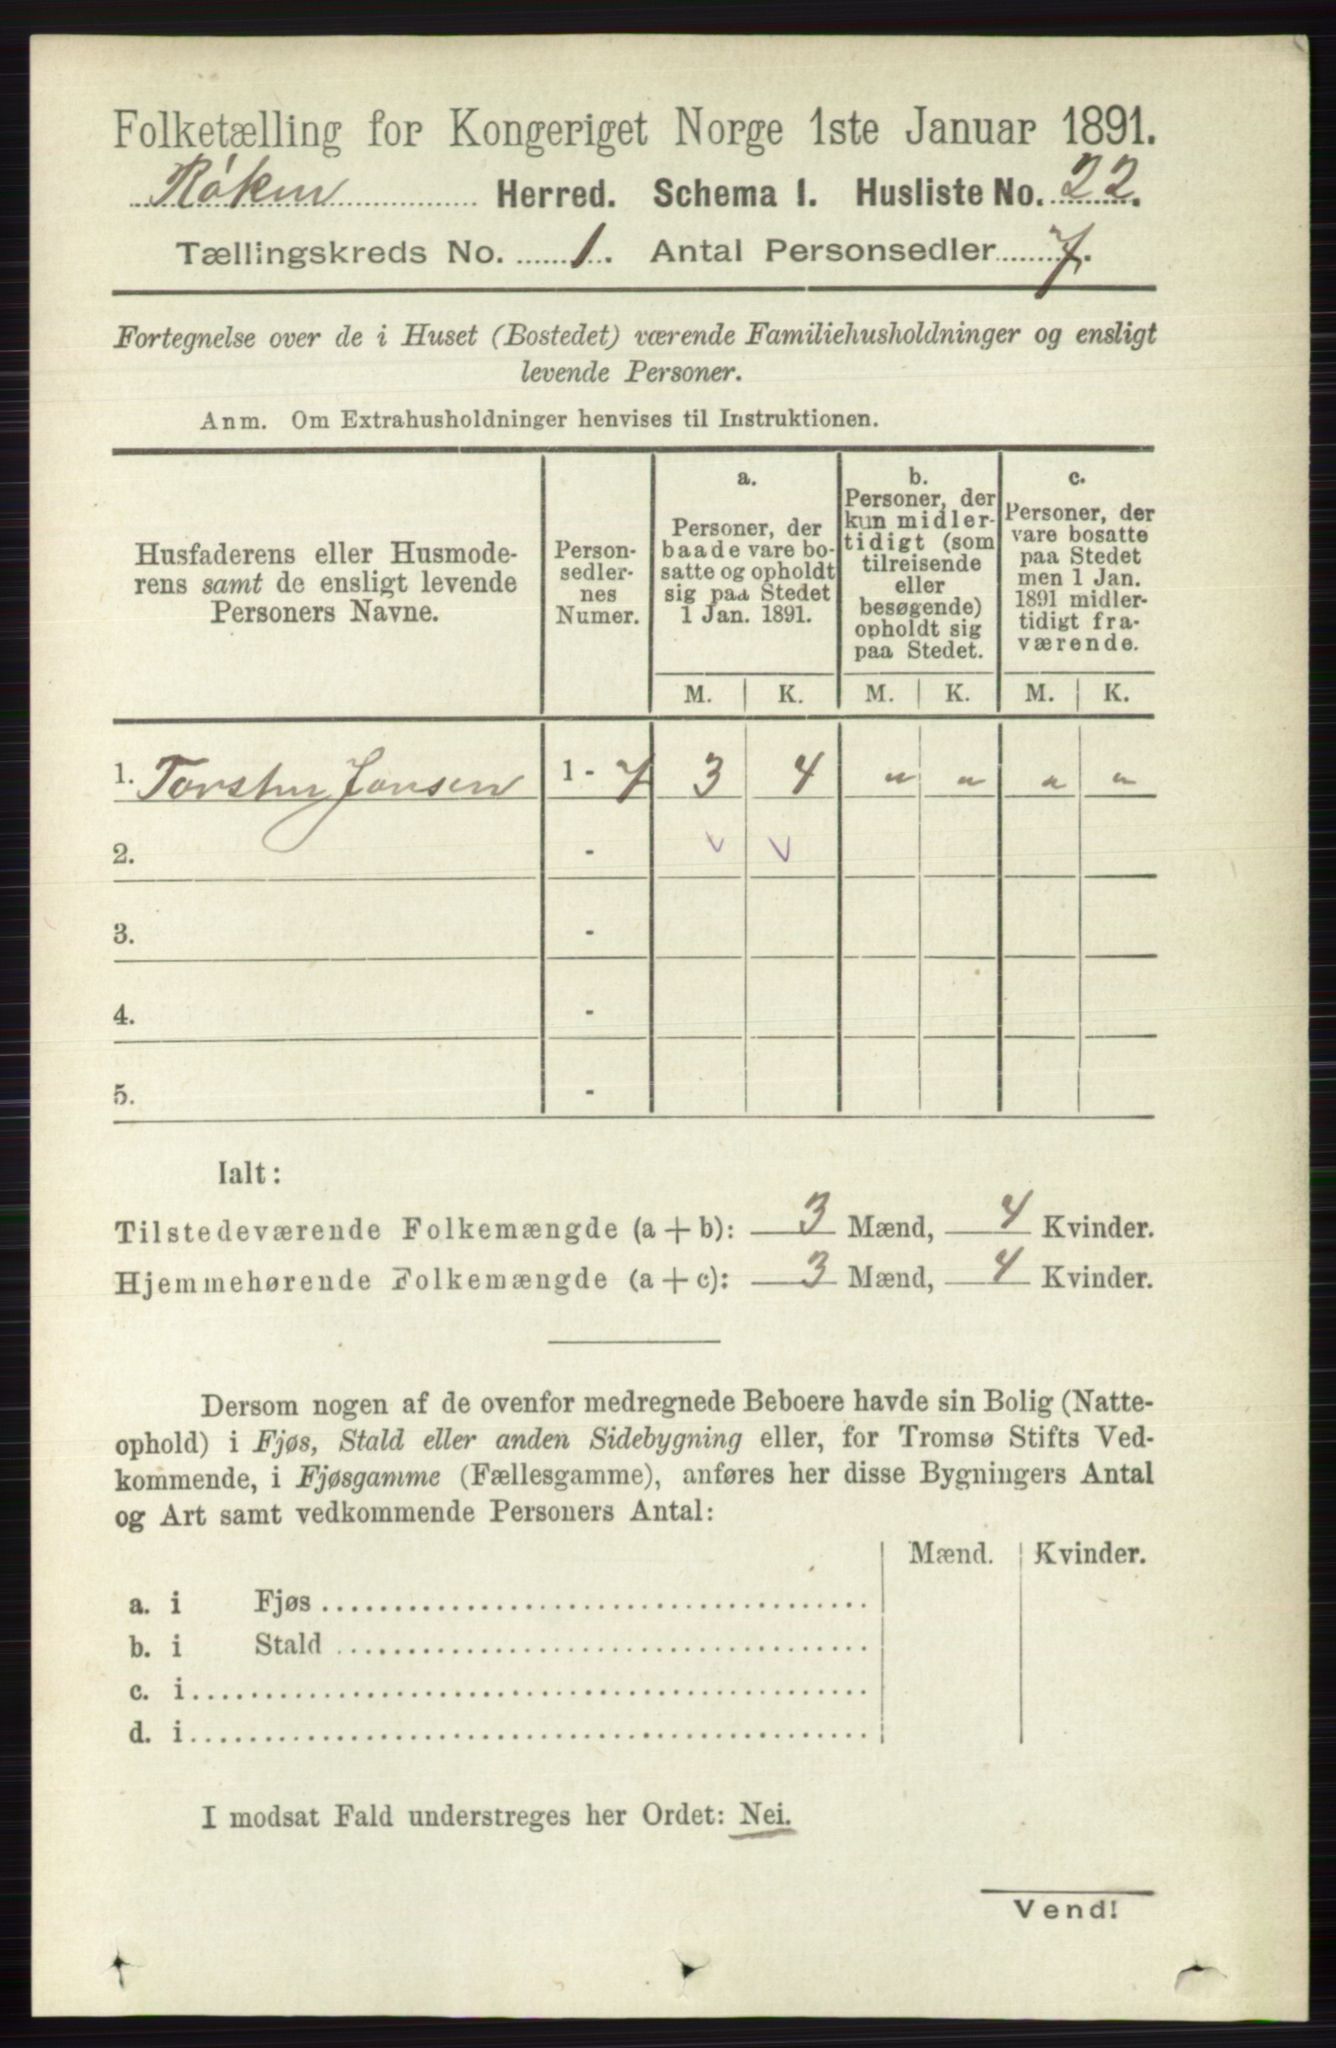 Folketælling for Kongeriget Norge 1ste Januar 1891.
Røken Herred. Schema I. Husliste No. 22.
Tællingskreds No. 1. Antal Personsedler 7.
Fortegnelse over de i Huset (Bostedet) værende Familiehusholdninger og ensligt
levende Personer.
Anm. Om Extrahusholdninger henvises til Instruktionen.
Husfaderens eller Husmode-
rens samt de ensligt levende
Personers Navne.
Person-
sedler-
nes
Numer.
a.
Personer, der
baade vare bo-
satte og opholdt
sig paa Stedet
1 Jan. 1891.
b.
Personer, der
kun midler-
tidigt (som
tilreisende
eller
besøgende)
opholdt sig
paa Stedet.
c.
Personer, der
vare bosatte
paa Stedet
men 1 Jan.
1891 midler-
tidigt fra-
værende.
M. K. M. K. M. K.
1. Torsten Jonsen 1 - 7 3 4 " " " "
2. - v v
3. -
4. -
5. -
Ialt:
Tilstedeværende Folkemængde (a + b): 3 Mænd, 4 Kvinder.
Hjemmehørende Folkemængde (a + c): 3 Mænd, 4 Kvinder.
Dersom nogen af de ovenfor medregnede Beboere havde sin Bolig (Natte-
ophold) i Fjøs, Stald eller anden Sidebygning eller, for Tromsø Stifts Ved-
kommende, i Fjøsgamme (Fællesgamme), anføres her disse Bygningers Antal
og Art samt vedkommende Personers Antal:
Mænd. Kvinder.
a. i Fjøs
b. i Stald
c. i
d. i
I modsat Fald understreges her Ordet: Nei.
Vend!